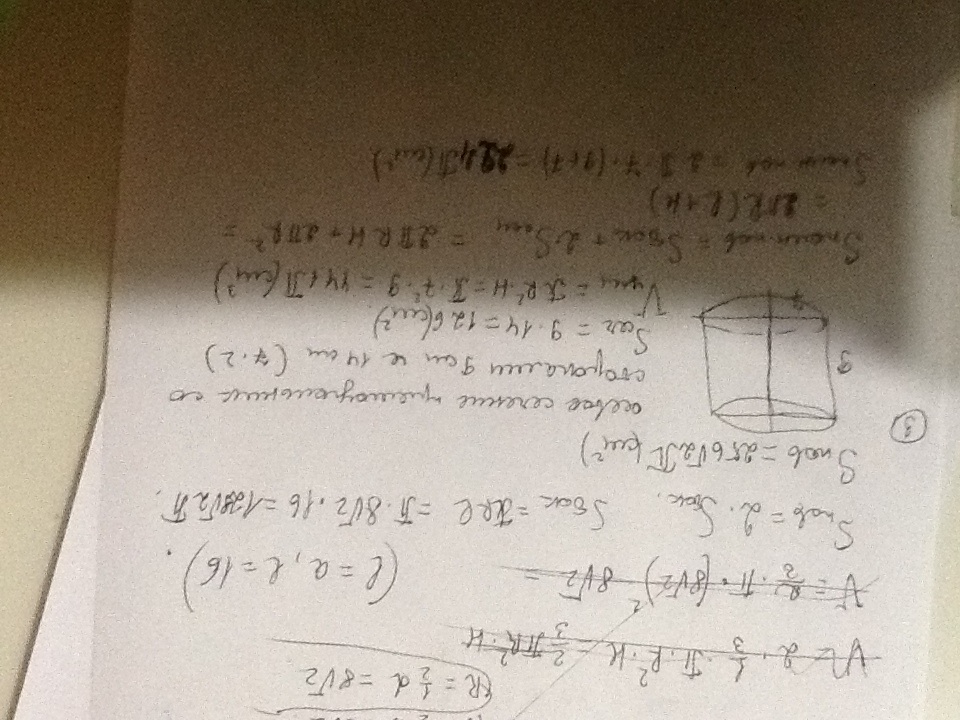 R = 1/2 d = 8√2
V = 2 · 1/3 · π · R² · H = 2/3 πR² · H
V = 2/3 · π · (8√2)² · 8√2 =
(l = a, l = 16)
Sпов = 2 · Sбок. Sбок = πRl = π · 8√2 · 16 = 128√2 π.
Sпов = 256√2 π (см²)
③
осевое сечение прямоугольник со
сторонами 9 см и 14 см (7·2)
9
7
Sсеч = 9 · 14 = 126 (см²)
Vцил = πR² · H = π · 7² · 9 = 441π (см³)
Sполн пов = Sбок + 2 Sосн = 2πRH + 2πR² =
= 2πR (R + H)
Sполн пов = 2π · 7 · (9+7) = 224π (см²)